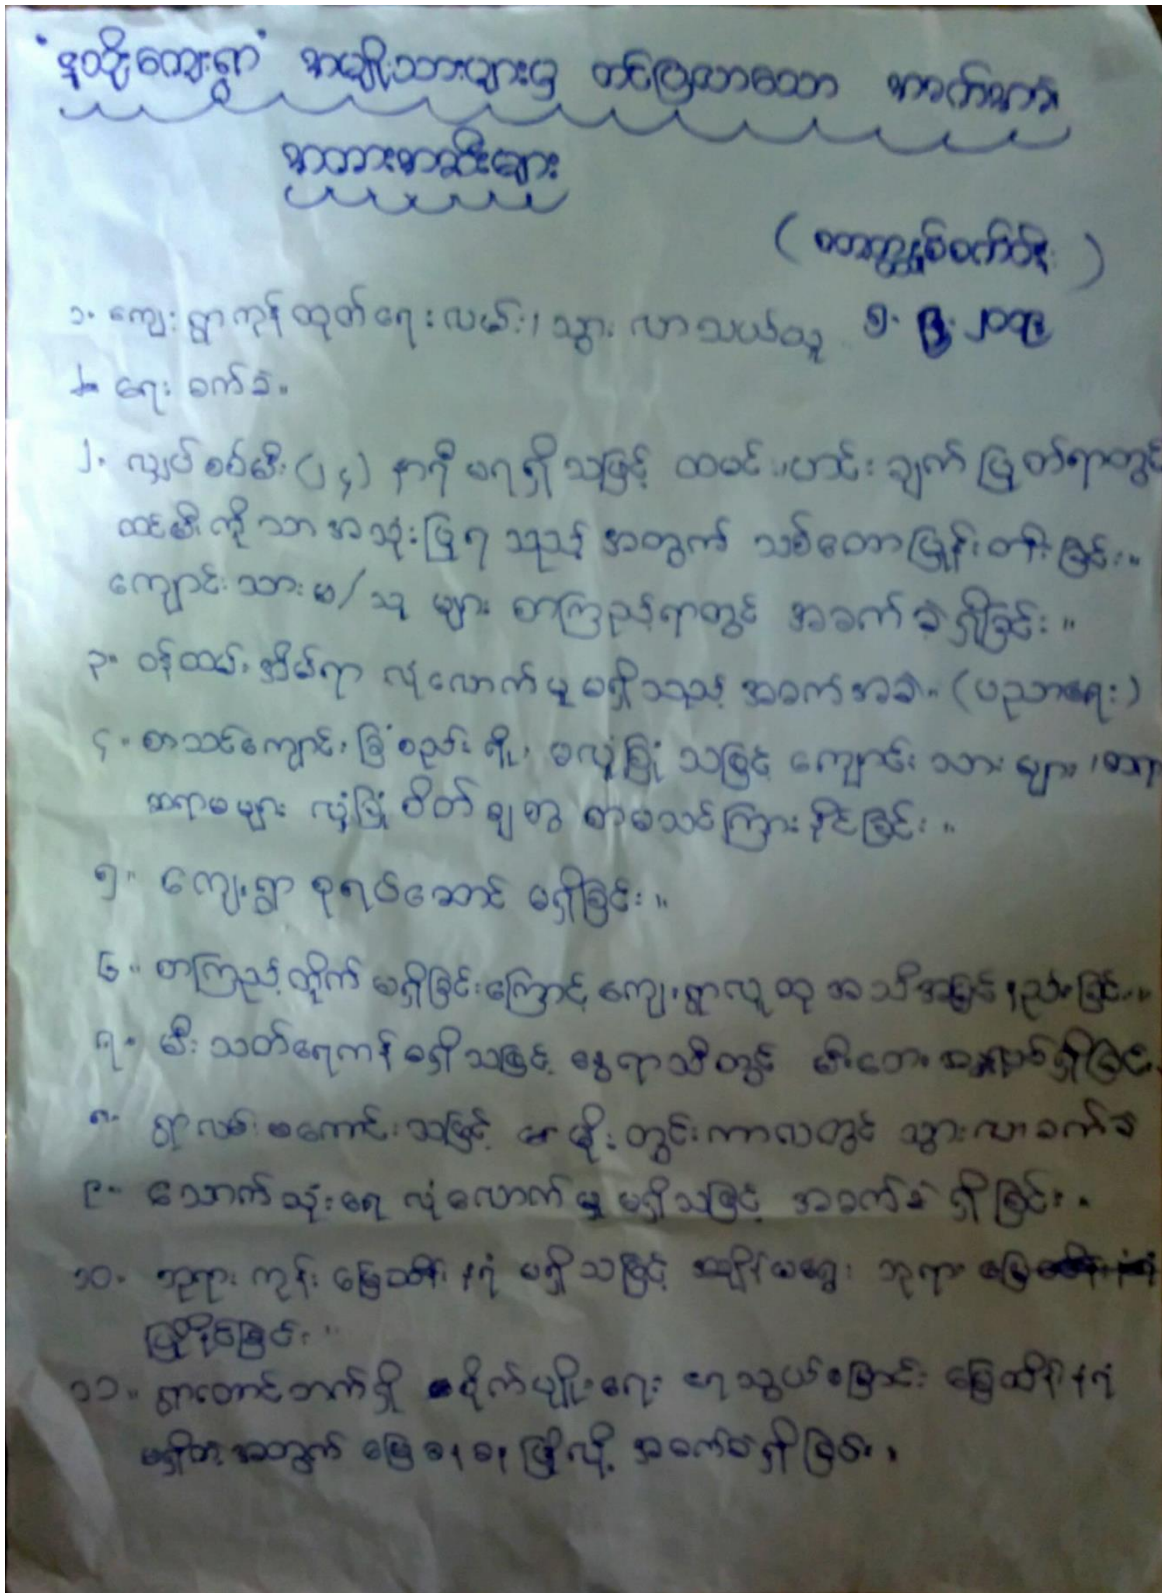 အမျိုးသားများမှ တင်ပြလာသော အခက်အခဲ
အတားအဆီးများ
၁. ကျေးရွာကုန်ထုတ်ရေးလမ်း၊ သွားလာသယ်ယူ
ရေးခက်ခဲ။
၂. လျှပ်စစ်မီး (၂၄) နာရီ မရရှိသဖြင့် ထမင်း၊ဟင်းချက်ပြုတ်ရာတွင်
ထင်းမီးကိုသာ အသုံးပြုရသည့်အတွက် သစ်တောပြုန်းတီးခြင်း။
ကျောင်းသားမ/သူ များ စာကြည့်ရာတွင် အခက်ခဲရှိခြင်း။
၃. ဝန်ထမ်းအိမ်ရာ လုံလောက်မှုမရှိသည့် အခက်အခဲ။ (ပညာရေး)
၄. စာသင်ကျောင်း ခြံစည်းရိုး မလုံခြုံသဖြင့် ကျောင်းသားများ
ဆရာမများ လုံခြုံစိတ်ချစွာ စာမသင်ကြားနိုင်ခြင်း။
၅။ ကျေးရွာ စုရပ်ဆောင် မရှိခြင်း။
၆။ စာကြည့်တိုက် မရှိခြင်းကြောင့် ကျေးရွာလူထု အသိအမြင်နည်းခြင်း။
၇. မီးသတ်ရေကန်မရှိသဖြင့် နွေရာသီတွင် မီးဘေး အန္တရာယ်ရှိခြင်း
၈. ရွာလမ်းမကောင်းသဖြင့် မိုးတွင်းကာလတွင် သွားလာခက်ခဲ
၉. သောက်သုံးရေ လုံလောက်မှု မရှိသဖြင့် အခက်ခဲရှိခြင်း။
၁၀. ဘုရားကုန်း မြေထိန်းနံရံ မရှိသဖြင့် အချိန်မရွေး ဘုရား
ပြိုနိုင်ခြင်း။
၁၁. ရွာတောင်ဘက်ရှိ စိုက်ပျိုးရေး မြောင်း မြေထိန်းနံရံ
မရှိတဲ့အတွက် မြေခဏခဏပြိုလို့ အခက်ခဲရှိခြင်း၊